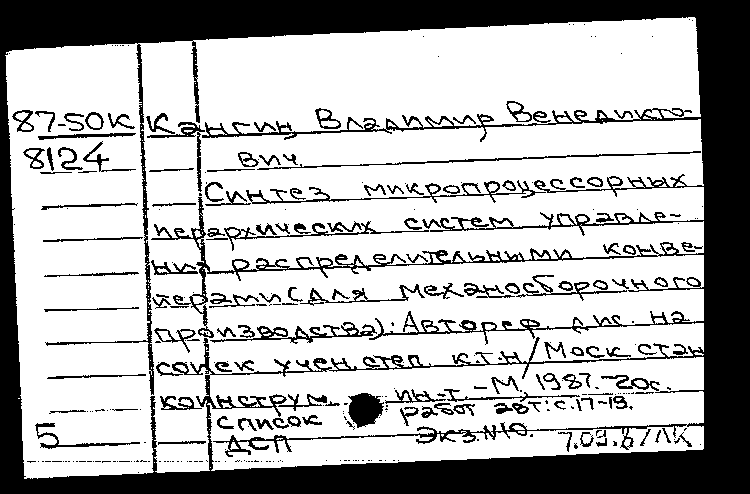 87-50К Кангин, Владимир Венедикто-
8124 вич.
Синтез микропроцессорных
иерархических систем управле-
ния распределительными конве-
йерами (для механосборочного
производства): Автореф. дис. на
соиск учен. степ. к.т.н./Моск стан
коинструм. ин-т. - М, 1987. - 20с.
Список работ авт: с.17-19.
5 ДСП Экз.№10. 7.09.87ЛК